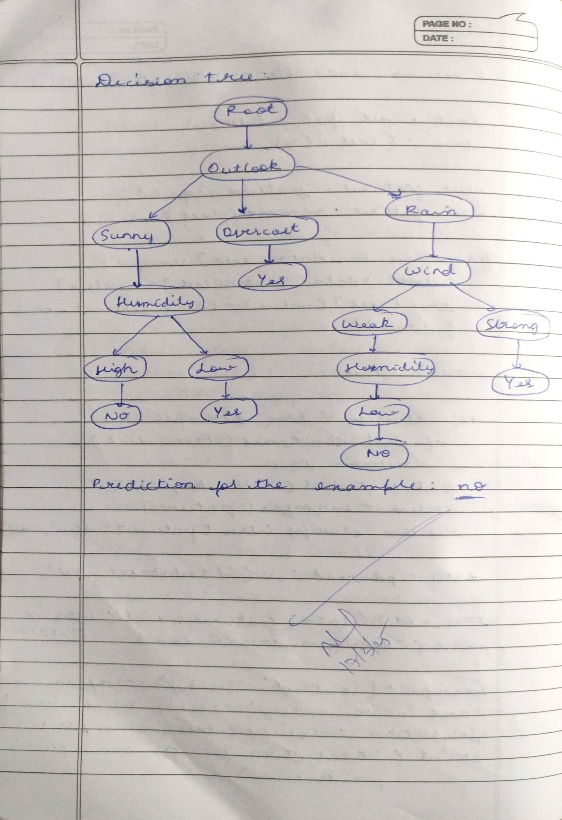 PAGE NO :
DATE :
Decision tree:
Root
Outlook
Sunny Overcast Rain
Yes Wind
Humidity
Weak Strong
High Low Humidity Yes
No Yes Low
NO
Prediction for the example: no